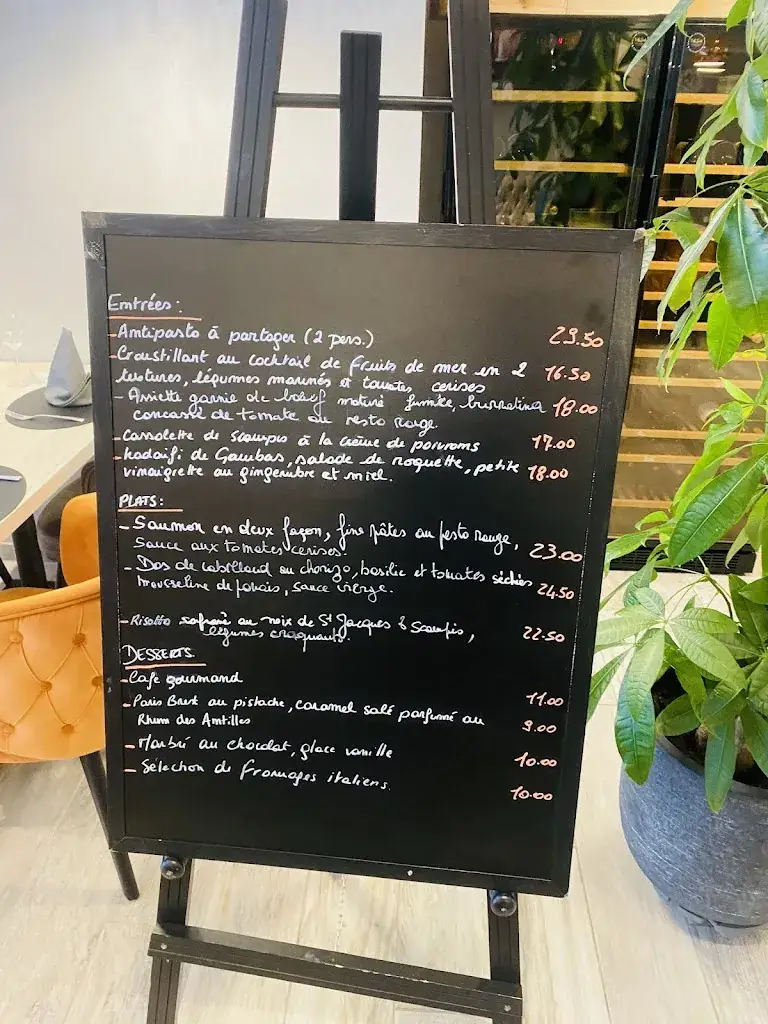 Entrées :
- Antipasto à partager (2 pers.) 29.50
- Croustillant au cocktail de fruits de mer en 2 16.50
textures, légumes marinés et tomates cerises
- Assiette garnie de bœuf maturé fumée, burratina 18.00
concassé de tomate au pesto rouge.
- Cassolette de Scampis à la crème de poivrons 17.00
- Kadaifi de Gambas, salade de roquette, petite 18.00
vinaigrette au gingembre et miel.
PLATS :
- Saumon en deux façon, fine pâtes au pesto rouge,
Sauce aux tomates cerises. 23.00
- Dos de cabillaud au chorizo, basilic et tomates séchées
Mousseline de panais, sauce vierge. 24.50
- Risotto safrané au noix de St Jacques & Scampis, 22.50
légumes craquants.
DESSERTS
- Café gourmand 11.00
- Paris Brest au pistache, caramel salé parfumé au 9.00
Rhum des Antilles
- Marbré au chocolat, glace vanille 10.00
- Sélection de fromages italiens. 10.00